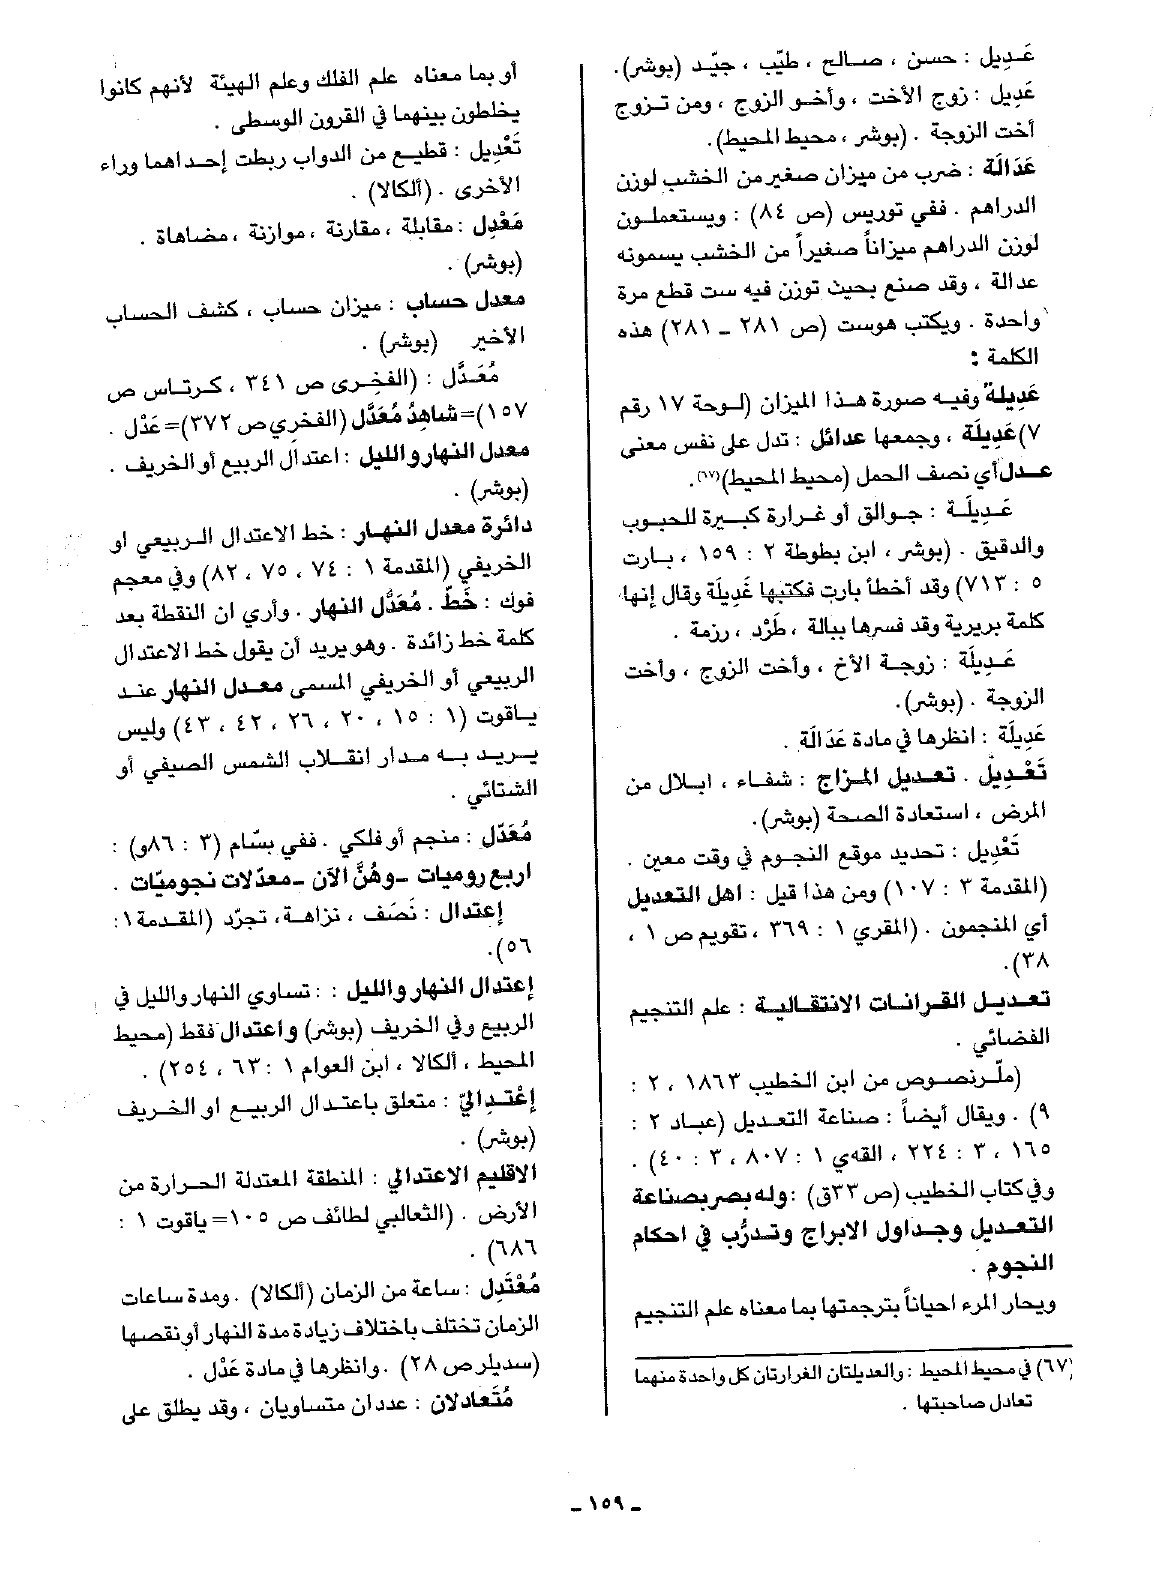 عَديل : حسن ، صالح ، طيّب ، جيّد (بوشر).
عَدِيل : زوج الأخت ، وأخو الزوج ، ومن تزوج
أخت الزوجة . (بوشر ، محيط المحيط).
عَدَالَة : ضرب من ميزان صغير من الخشب لوزن
الدراهم . ففي توريس (ص ٨٤) : ويستعملون
لوزن الدراهم ميزاناً صغيراً من الخشب يسمونه
عدالة ، وقد صنع بحيث توزن فيه ست قطع مرة
واحدة . ويكتب هوست (ص ٢٨١ ـ ٢٨١) هذه
الكلمة :
عَدِيلة وفيه صورة هذا الميزان (لوحة ١٧ رقم
٧) عَدِيلَة ، وجمعها عدائل : تدل على نفس معنى
عدل أي نصف الحمل (محيط المحيط)(٦٧).
عَدِيلَة : جوالق أو غرارة كبيرة للحبوب
والدقيق . (بوشر ، ابن بطوطة ٢ : ١٥٩ ، بارت
٥ : ٧١٣) وقد أخطأ بارت فكتبها غَدِيلَة وقال إنها
كلمة بربرية وقد فسرها ببالة ، طَرْد ، رزمة .
عَدِيلَة : زوجة الأخ ، وأخت الزوج ، وأخت
الزوجة . (بوشر).
عَدِيلَة : انظرها في مادة عَدَالَة .
تَعْدِيل . تعديل المزاج : شفاء ، ابلال من
المرض ، استعادة الصحة (بوشر).
تَعْدِيل : تحديد موقع النجوم في وقت معين .
(المقدمة ٣ : ١٠٧) ومن هذا قيل : اهل التعديل
أي المنجمون . (المقري ١ : ٣٦٩ ، تقويم ص ١ ،
٣٨).
تعديل القرانات الانتقالية : علم التنجيم
القضائي .
(ملّر نصوص من ابن الخطيب ١٨٦٣ ، ٢ :
٩) . ويقال أيضاً : صناعة التعديل (عباد ٢ :
١٦٥ ، ٣ : ٢٢٤ ، القه‍ي ١ : ٨٠٧ ، ٣ : ٤٠) .
وفي كتاب الخطيب (ص ٣٣ق) : وله بصر بصناعة
التعديل وجداول الابراج وتدرُّب في احكام
النجوم .
ويحار المرء احياناً بترجمتها بما معناه علم التنجيم
(٦٧) في محيط المحيط : والعديلتان الغرارتان كل واحدة منهما
تعادل صاحبتها .
أو بما معناه علم الفلك وعلم الهيئة لأنهم كانوا
يخلطون بينهما في القرون الوسطى .
تَعْدِيل : قطيع من الدواب ربطت إحداهما وراء
الأخرى . (ألكالا) .
مَعْدِل : مقابلة ، مقارنة ، موازنة ، مضاهاة .
(بوشر) .
معدل حساب : ميزان حساب ، كشف الحساب
الأخير (بوشر) .
مُعَدَّل : (الفخري ص ٣٤١ ، كرتاس ص
١٥٧)=شاهِدُ مُعَدَّل (الفخري ص ٣٧٢)=عَدْل .
معدل النهار والليل : اعتدال الربيع أو الخريف .
(بوشر) .
دائرة معدل النهار : خط الاعتدال الربيعي او
الخريفي (المقدمة ١ : ٧٤ ، ٧٥ ، ٨٢) وفي معجم
فوك : خَطّ . مُعَدَّل النهار . وأرى ان النقطة بعد
كلمة خط زائدة . وهو يريد أن يقول خط الاعتدال
الربيعي أو الخريفي المسمى معدل النهار عند
ياقوت (١ : ١٥ ، ٢٠ ، ٢٦ ، ٤٢ ، ٤٣) وليس
يريد به مدار انقلاب الشمس الصيفي أو
الشتائي .
مُعَدّل : منجم أو فلكي . ففي بسّام (٣ : ٨٦و) :
اربع روميات ـ وهُنَّ الآن ـ معدّلات نجوميّات .
إعتدال : نَصَف ، نزاهة ، تجرّد (المقدمة ١ :
٥٦).
إعتدال النهار والليل : : تساوي النهار والليل في
الربيع وفي الخريف (بوشر) واعتدال فقط (محيط
المحيط ، ألكالا ، ابن العوام ١ : ٦٣ ، ٢٥٤) .
إعْتِدالِيّ : متعلق باعتدال الربيع او الخريف
(بوشر) .
الاقليم الاعتدالي : المنطقة المعتدلة الحرارة من
الأرض . (الثعالبي لطائف ص ١٠٥=ياقوت ١ :
٦٨٦) .
مُعْتَدِل : ساعة من الزمان (ألكالا) . ومدة ساعات
الزمان تختلف باختلاف زيادة مدة النهار أو نقصها
(سديلر ص ٢٨) . وانظرها في مادة عَدْل .
مُتَعادلان : عددان متساويان ، وقد يطلق على
ـ ١٥٩ ـ